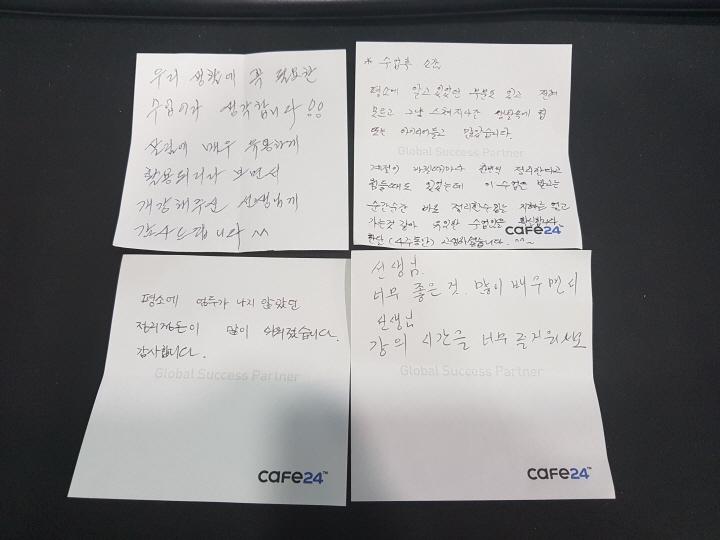 우리 생활에 꼭 필요한
수업이라 생각합니다 !!
살림에 매우 유용하게
활용되리라 보면서
선생님께
감사드립니다 ^^
* 수업후 소감
평소에 알고 있었던 부분도 있고 전혀
모르고 그냥 스쳐지나간 생활속에 팁
또는 아이디어들고 많았습니다.
Global Success Partner
계절이 바뀔때마다 한번씩 정리한다고
힘들때도 있었는데 이 수업은 받고는
순간순간 바로 정리할수있는 지혜를 얻고
가는것 같아 유익한 수업이였음 확신합니다.
한달 (4주동안) 고마웠습니다. ^^~
cafe24™
평소에 엄두가 나지 않았던
정리정돈이 많이 쉬워졌습니다.
감사합니다.
Global Success Partner
cafe24™
선생님.
너무 좋은것. 많이 배우면서
선생님
강의 시간을 너무 즐거워써요
Global Success Partner
cafe24™